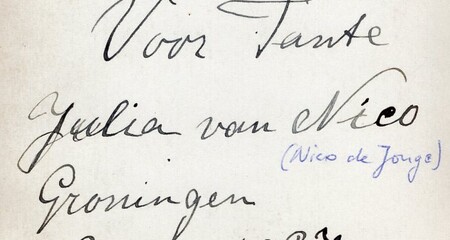 Voor Tante
Julia van Nico
(Nico de Jonge)
Groningen